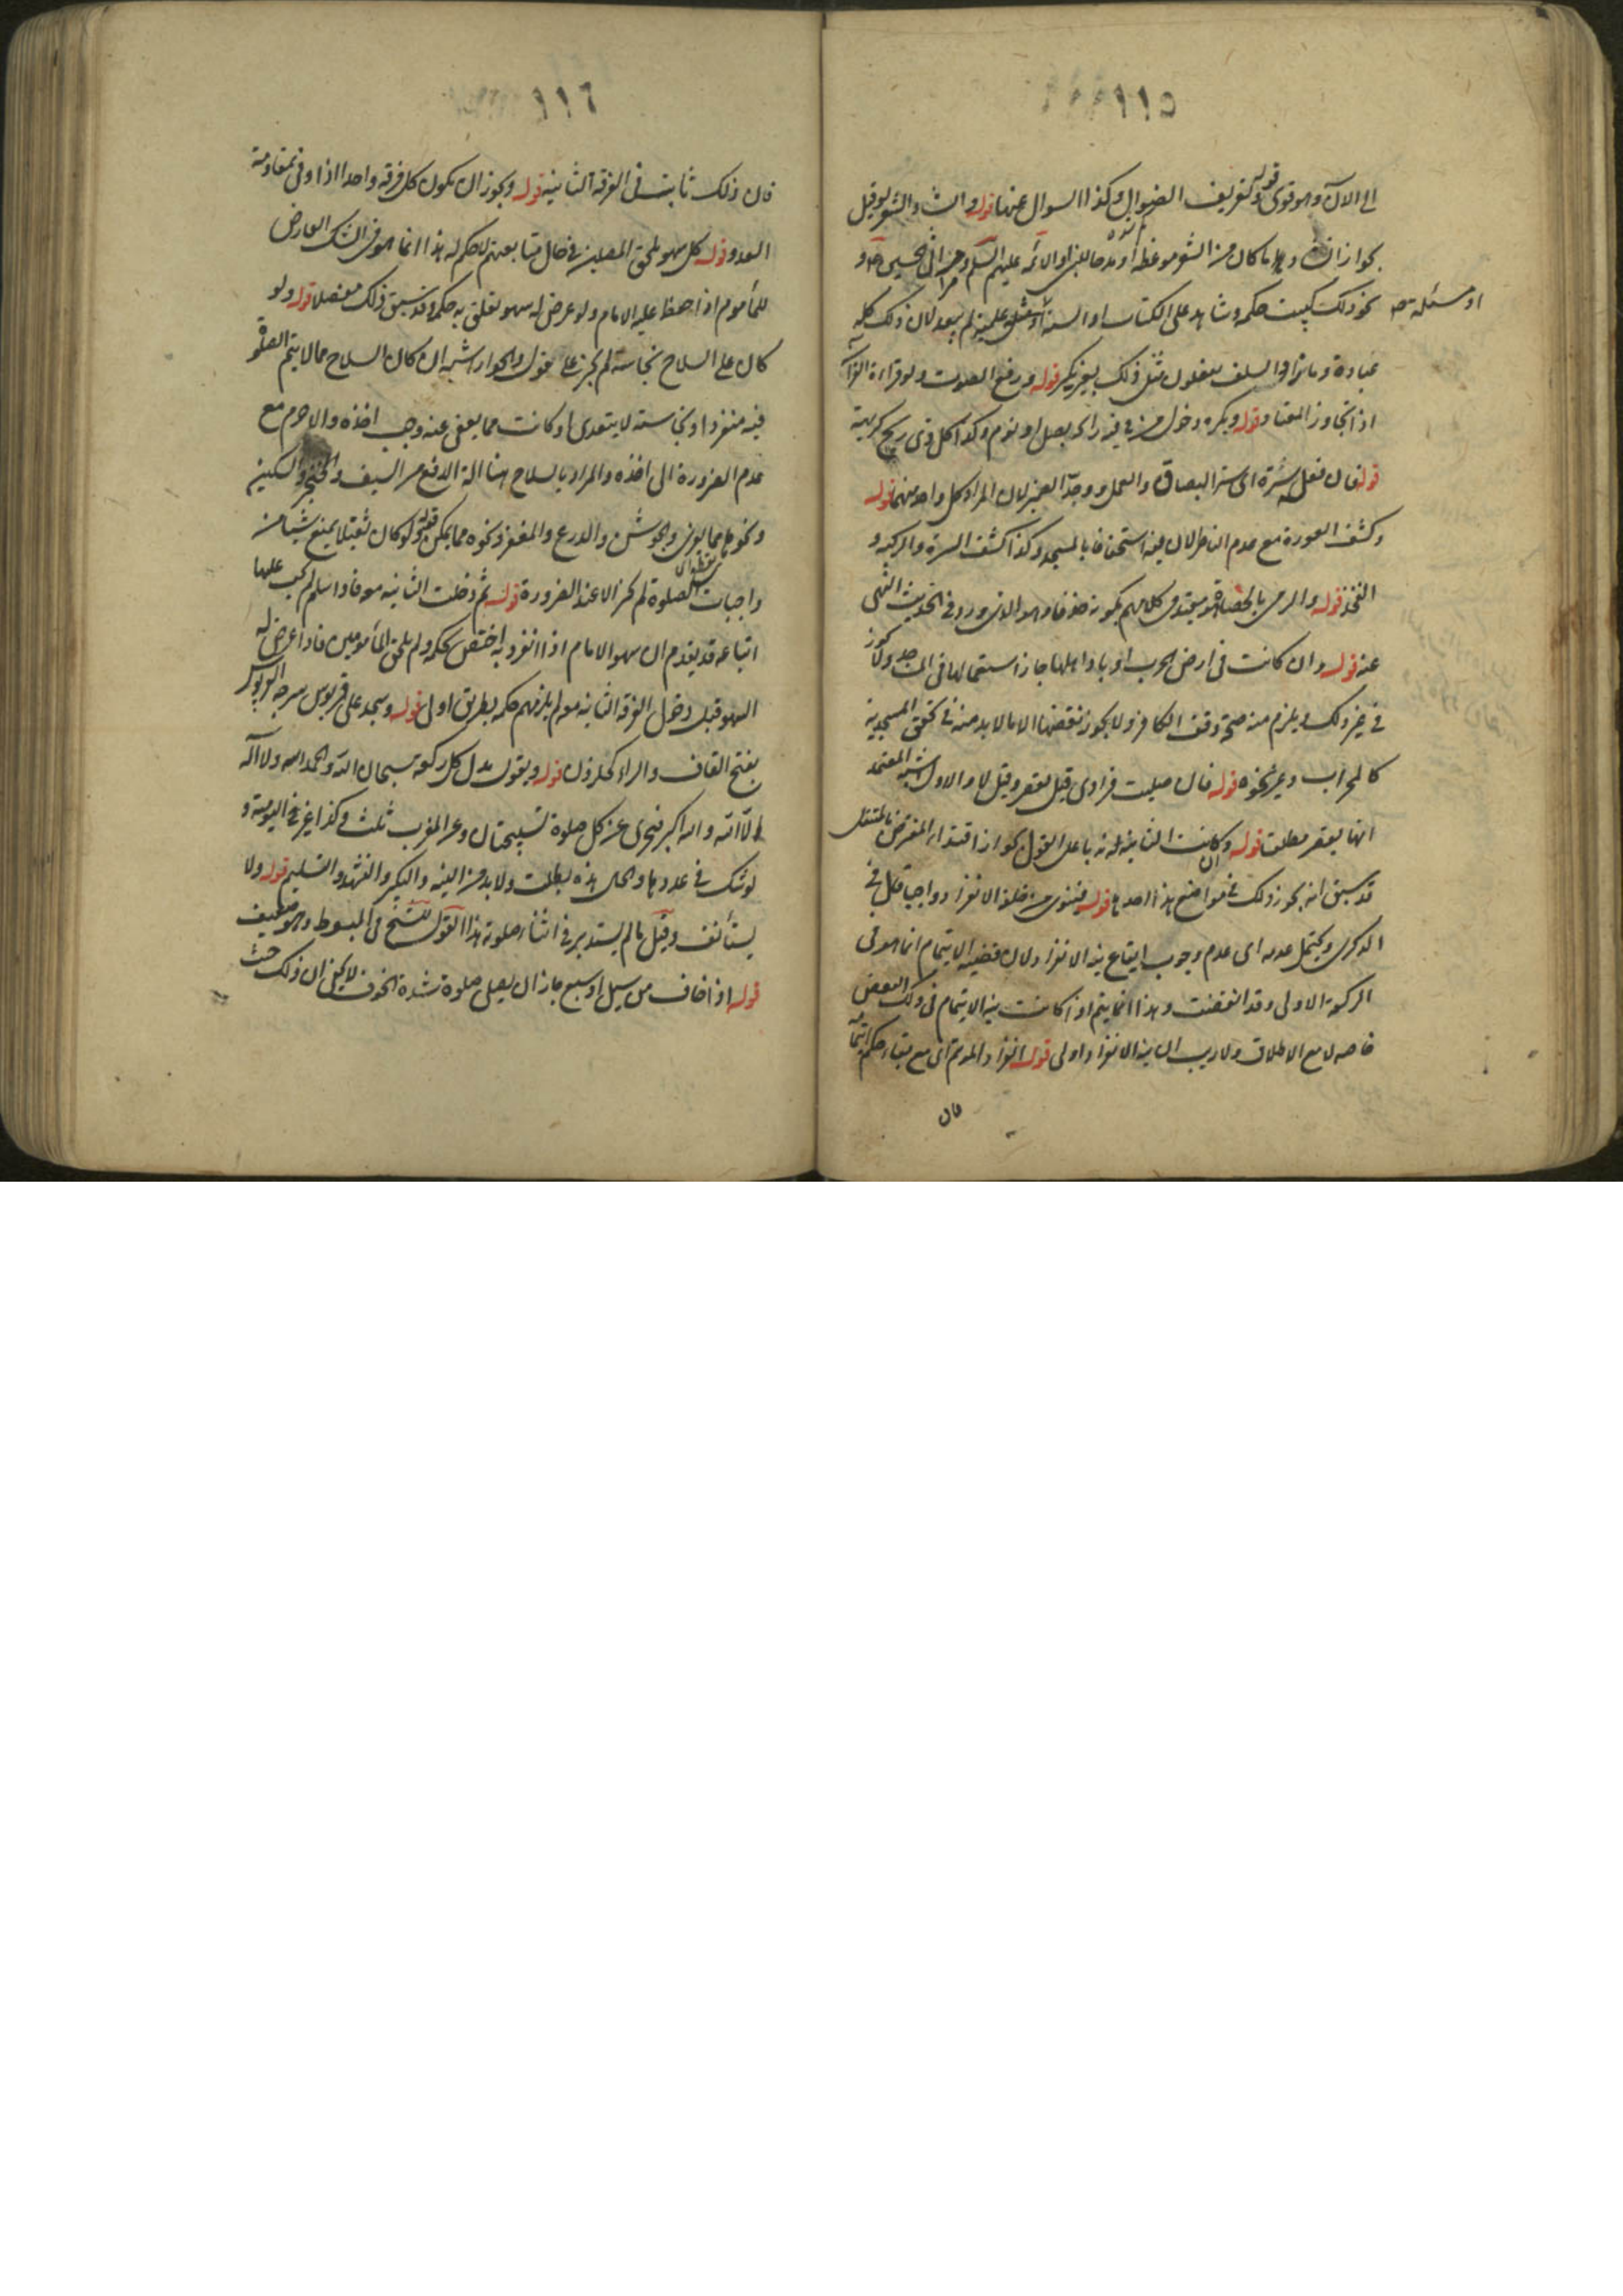 ١١٥
الى الآن وهو قوى قوله وتعريف الضوال وكذا السوال عنها قوله وانشاد الشعر لو قيل
بجواز انشاد ما كان من الشعر موعظة او مدحا للنبي او الائمة عليهم السلم او مراثي الحسين ع او
نحو ذلك كبيت حكمة وشاهد على الكتاب او السنة لم يبعد لان ذلك كله
او مسئلة صح
عبادة وما زال السلف يفعلون مثل ذلك بغير نكير قوله ورفع الصوت ولو قراءة القرآن
اذا تجاوز المعتاد قوله ويكره دخول من في فيه رائحة بصل او ثوم وكذا كل ذي ريح كريهة
قوله فان فعل ستره اى ستر البصاق والقمل ووحد الضمير لان المراد كل واحد منهما قوله
وكشف العورة مع عدم الناظر لان فيه استخفافا بالمسجد وكذا كشف السرة والركبة و
الفخذ قوله والرمى بالحصاة هو مقيد فى كلامهم بكونه خذفا وهو الذى ورد في الحديث النهى
عنه قوله وان كانت في ارض الحرب او باد اهلها جاز استعمالها في المساجد ولا يجوز
في غير ذلك ويلزم منه صحة وقف الكافر ولا يجوز نقضها الا ما لا بد منه في تحقق المسجدية
كالمحراب ونحوه قوله فان صليت فرادى قيل يقصر وقيل لا والاول اشبه المعتمد
انها تقصر مطلقا قوله وان كانت الثانية له ندبا على القول بجواز اقتداء المفترض بالمتنفل
قد سبق انه يجوز ذلك في مواضع هذا احدها قوله فتنوى من خلفه الانفراد واجبا قال في
الذكرى ويحتمل عدمه اى عدم وجوب ايقاع نية الانفراد لان قضية الايتمام انما هو في
الركعة الاولى وقد انقضت وهذا انما يتم اذا كانت نية الايتمام في ذلك البعض
خاصة لا مع الاطلاق ولا ريب ان نية الانفراد اولى قوله انفراد المؤتم اى مع بقاء حكم ايتمامه
فان
١١٦
فان ذلك ثابت فى الفرقة الثانية قوله ويجوز ان يكون كل فرقة واحدا اذا وفى بمقاومة
العدو قوله كل سهو يلحق المصلين في حال متابعتهم لا حكم له هذا انما هو فى الشك العارض
للمأموم اذا حفظ عليه الامام ولو عرض له سهو تعلق به حكمه وقد سبق ذلك مفصلا قوله ولو
كان على السلاح نجاسة لم يجز على قول والجواز اشبه ان كان السلاح مما لا يتم الصلوة
فيه منفردا او نجاسته لا يتعدى او كانت مما يعفى عنه وجب اخذه والا حرم مع
عدم الضرورة الى اخذه والمراد بالسلاح هنا آلة الدفع من السيف والخنجر والسكين
ونحوها مما يوذى والجوشن والدرع والمغفر ونحوه مما يمكن قوله ولو كان ثقيلا يمنع شيئا من
واجبات الصلوة لم يجز الا عند الضرورة قوله ثم دخلت الثانية معه فاذا سلم لم يجب عليها
اتباعه قد يقدم ان سهو الامام اذا انفرد به اختص بحكمه ولم يلحق المأمومين فاذا عرض له
السهو قبل دخول الفرقة الثانية معه لم يلزمهم حكمه بطريق اولى قوله وسجد على قربوس سرجه القربوس
بفتح القاف والراء كحلزون قوله ويقول بدل كل ركعة سبحان الله والحمد لله ولا اله
الا الله والله اكبر فيجزى عن كل صلوة تسبيحتان وعن المغرب ثلث وكذا غير اليومية و
لو شك في عددها والحال هذه بطلت ولا بد من النية والتكبير والتشهد والتسليم قوله ولا
يستأنف وقيل ما لم يستدبر في اثناء صلوته هذا القول للشيخ فى المبسوط وهو ضعيف
قوله اذا خاف من سيل او سبع جاز ان يصلى صلوة شدة الخوف لا يخفى ان ذلك حيث